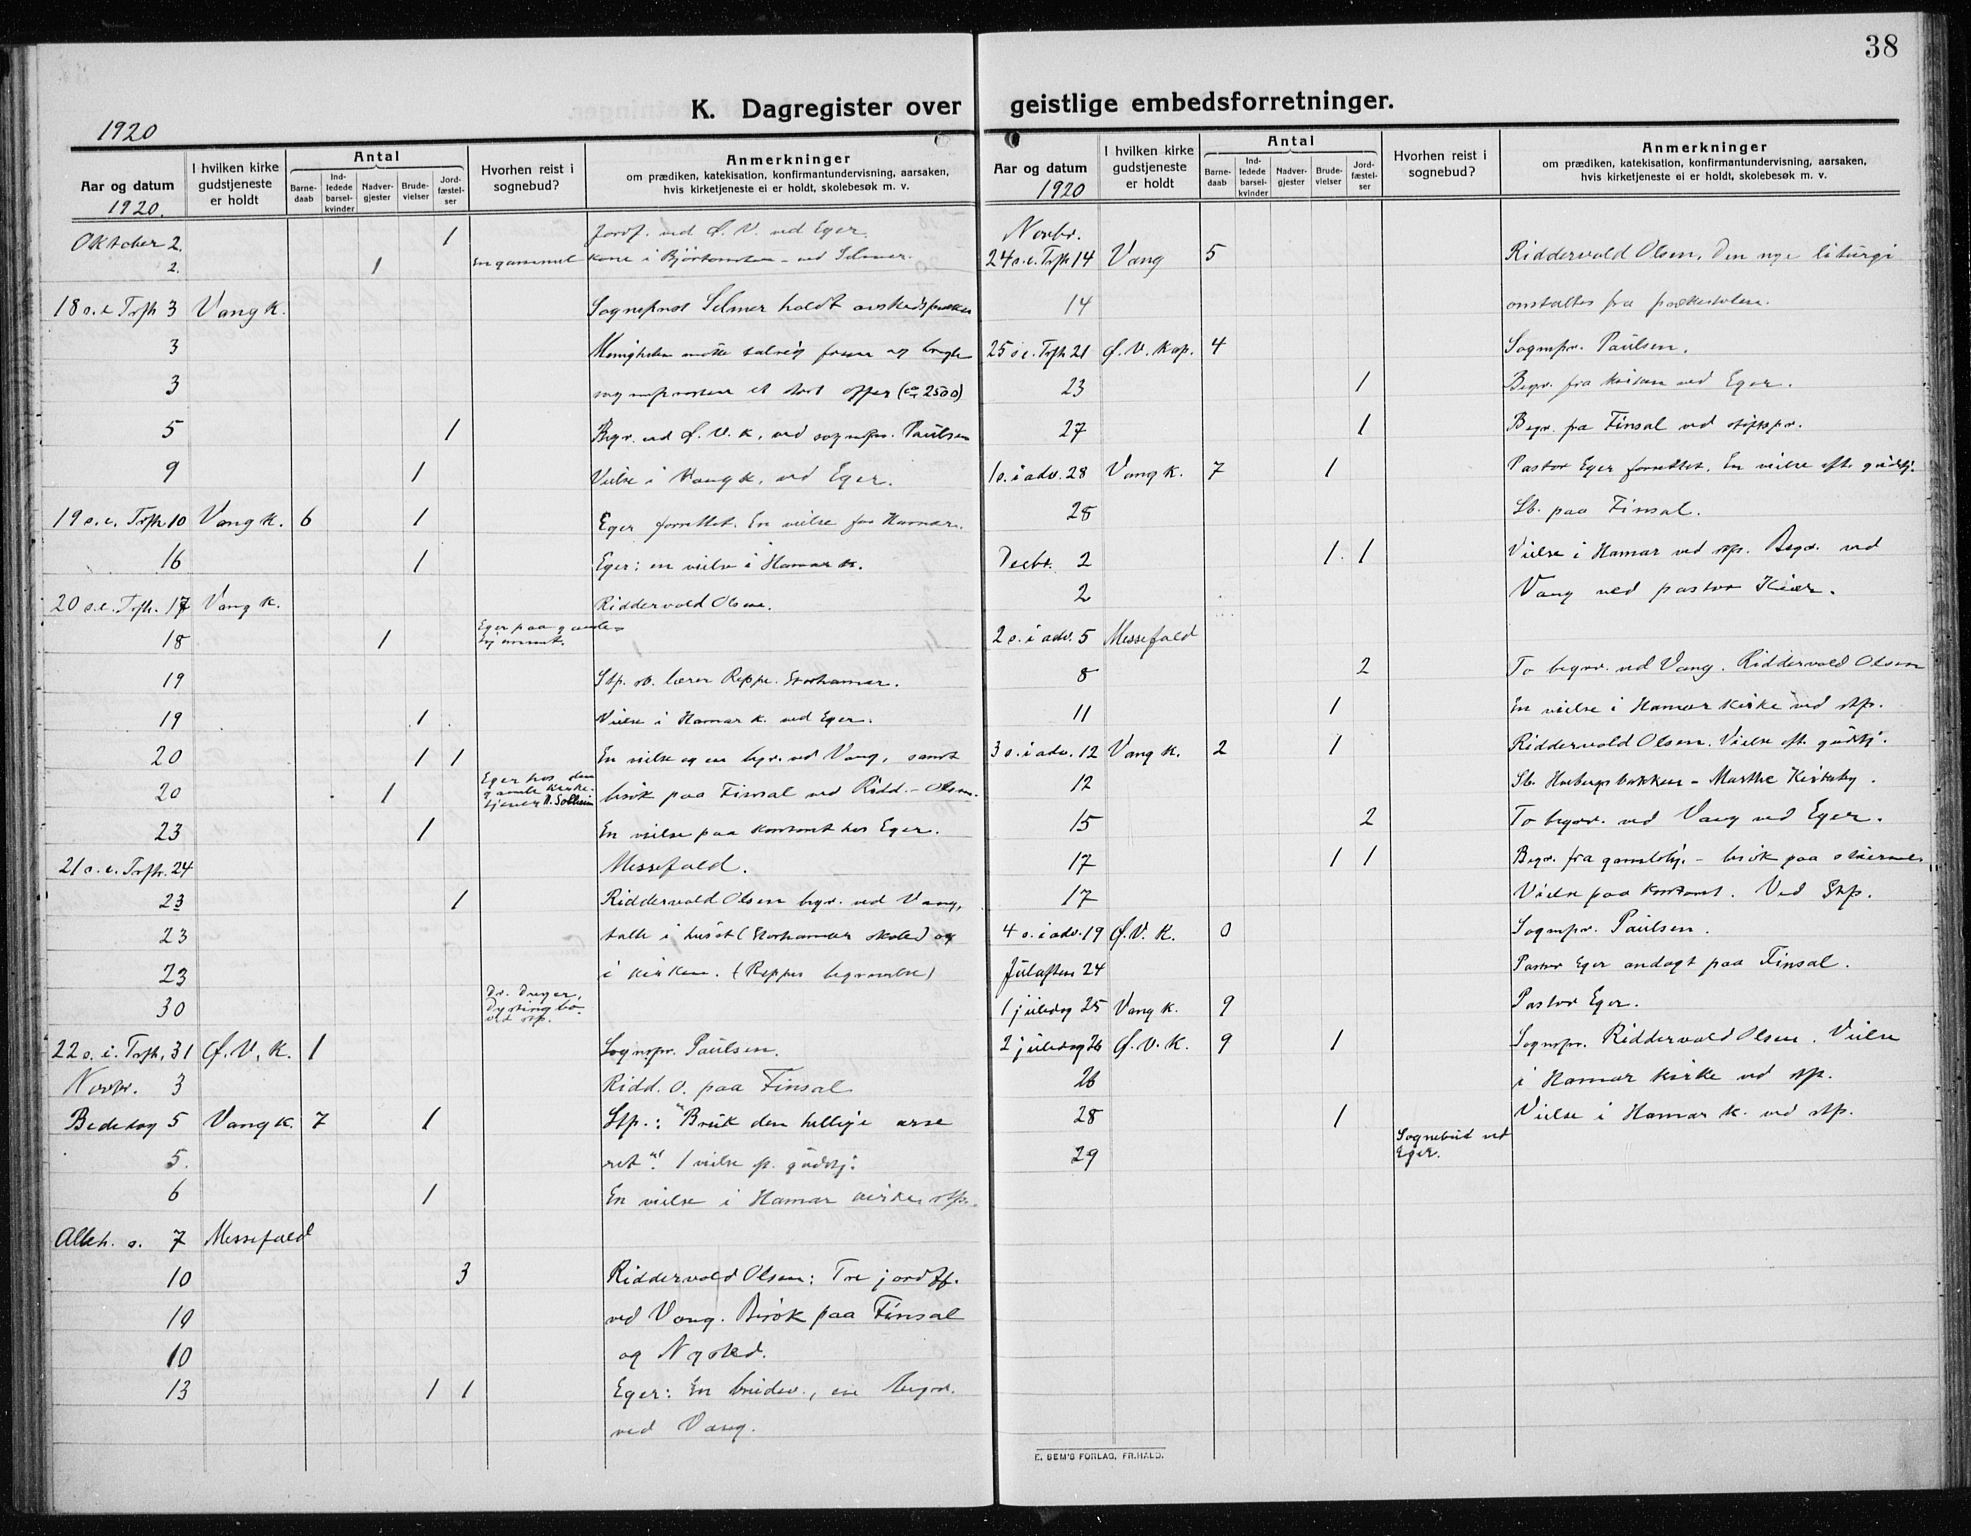 38
K. Dagregister over geistlige embedsforretninger.
1920
Aar og datum
1920.
I hvilken kirke gudstjeneste er holdt
Antal
Barne-daab
Ind-ledede barsel-kvinder
Nadver-gjester
Brude-vielser
Jord-fæstel-ser
Hvorhen reist i sognebud?
Anmerkninger
om prædiken, katekisation, konfirmantundervisning, aarsaken,
hvis kirketjeneste ei er holdt, skolebesøk m. v.
Oktober 2. 1 Jordf. ved Ø. V. ved Eger.
2. 1 En gammel kone i ved Selmer.
18 s. e. Trfh 3 Vang k. Sogneprest Selmer holdt
3 Menigheten møtte
3 sognepresten et stort offer (ca 2500)
5 1 Begr. ved Ø. V. K. ved sognepr. Paulsen
9 1 Vielse i Vang k. ved Eger.
19 s. e. Trfh 10 Vang k. 6 1 Eger forrettet. En vielse fra Hamar.
16 1 Eger: en vielse i Hamar k.
20 s. e. Trfh. 17 Vang k. Riddervold Olsen.
18 1 Eger paa gamle-hjemmet.
19 Stp. lærer Reppe. Storhamar.
19 1 Vielse i Hamar k. ved Eger.
20 1 1 En vielse og en begr. ved Vang, samt
20 1 Eger hos den gamle kirke-tjener Solheim besøk paa Finsal ved Ridd. Olsen.
23 1 En vielse paa kontoret hos Eger.
21 s. e. Trfh. 24 Messefald.
23 1 Riddervold Olsen begr. ved Vang,
23 talte i huset (Storhamar skole) og
23 i kirken. (Reppes begravelse)
30 Dr. Dreyer, Dystingbo ved stp.
22 s. i. Trfh. 31 Ø. V. K. 1 Sognepr. Paulsen.
Novbr. 3 Ridd. O. paa Finsal
Bededag 5 Vang k. 7 1 Stp.: "Bruk den hellige
5. ret". 1 vielse gudstj.
6 1 En vielse i Hamar kirke, stp.
Alleh. s. 7 Messefald
10 3 Riddervold Olsen: Tre jordff.
10 ved Vang. Besøk paa Finsal
10 og Nysted.
13 1 1 Eger: En brudev., en begr.
ved Vang.
Aar og datum
1920
I hvilken kirke gudstjeneste er holdt
Antal
Barne-daab
Ind-ledede barsel-kvinder
Nadver-gjester
Brude-vielser
Jord-fæstel-ser
Hvorhen reist i sognebud?
Anmerkninger
om prædiken, katekisation, konfirmantundervisning, aarsaken,
hvis kirketjeneste ei er holdt, skolebesøk m. v.
Novbr.
24 s. e. Trfh 14 Vang 5 Riddervold Olsen. Den nye liturgi
14 omtaltes fra prækestolen.
25 s. e. Trfh 21 Ø. V. Kap. 4 Sognepr. Paulsen.
23 1 Begr. fra ved Eger.
27 1 Begr. fra Finsal ved stiftspr.
1 s. i adv. 28 Vang k. 7 1 Pastor Eger forrettet. En vielse eft. gudstj.
28 Sb. paa Finsal.
Decbr. 2 1. 1 Vielse i Hamar ved stp. Begr. ved
2 Vang ved pastor Kiær.
2 s. i adv. 5 Messefald
8 2 To begrv. ved Vang. Riddervold Olsen
11 1 En vielse i Hamar kirke ved stp.
3 s. i adv. 12 Vang k. 2 1 Riddervold Olsen. Vielse eft. gudstj.
12 Sb. – Marthe Kirkeby.
15 2 To begrv. ved Vang ved Eger.
17 1 1 Begr. fra gamlehj. – besøk paa
17 Vielse paa kontoret. Ved Stp.
4 s. i adv. 19 Ø. V. K. 0 Sognepr. Paulsen.
Julaften 24 Pastor Eger andagt paa Finsal.
1 juledag 25 Vang k. 9 Pastor Eger.
2 juledag 26 Ø. V. K. 9 1 Sognepr. Riddervold Olsen. Vielse
26 i Hamar kirke ved stp.
28 1 Vielse i Hamar k. ved stp.
29 Sognebud ved Eger.
E. SEM'S FORLAG, FR.HALD.